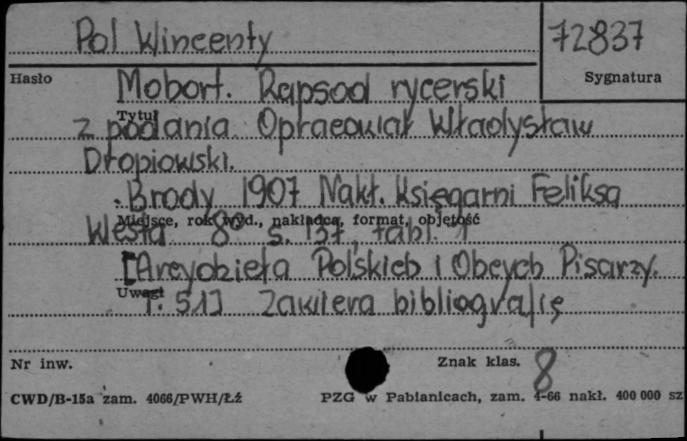 Pol Wincenty
72837
Hasło
Sygnatura
Mohort. Rapsod rycerski
Tytuł
z podania. Opracował Władysław
Dropiowski.
Brody 1907 Nakł. Księgarni Feliksa
Miejsce, rok wyd., nakładca, format, objętość
Westa 8° s. 137, tabl. 1
[Arcydzieła Polskich i Obcych Pisarzy.
Uwagi
T. 51] Zawiera bibliografię
Nr inw.
Znak klas. 8
CWD/B-15a zam. 4066/PWH/Łź
PZG w Pabianicach, zam. 4-66 nakł. 400 000 sz